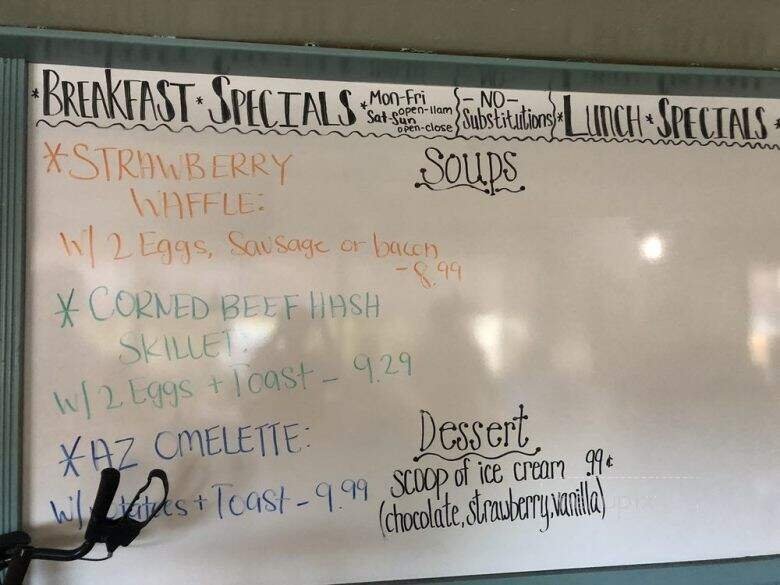 *BREAKFAST*SPECIALS*
Mon-Fri open-11am
Sat-Sun open-close
-NO-
Substitutions
*LUNCH*SPECIALS*
*STRAWBERRY
WAFFLE:
W/ 2 Eggs, Sausage or bacon
-8.99
*CORNED BEEF HASH
SKILLET:
W/ 2 Eggs + Toast - 9.29
*AZ OMELETTE:
W/ + Toast - 9.99
Soups
Dessert
scoop of ice cream 99¢
(chocolate, strawberry, vanilla)